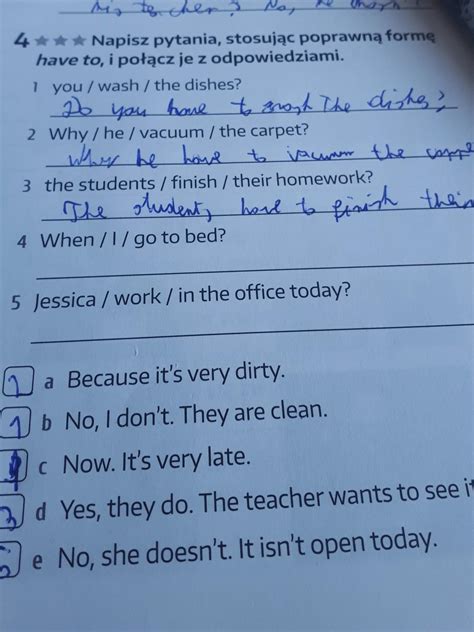 4 ★★★ Napisz pytania, stosując poprawną formę
have to, i połącz je z odpowiedziami.
1 you / wash / the dishes?
Do you have to wash The dishes?
2 Why / he / vacuum / the carpet?
Why he have to vacuum the
3 the students / finish / their homework?
The students have to finish their
4 When / I / go to bed?
5 Jessica / work / in the office today?
a Because it's very dirty.
1 b No, I don't. They are clean.
c Now. It's very late.
3 d Yes, they do. The teacher wants to see it
e No, she doesn't. It isn't open today.